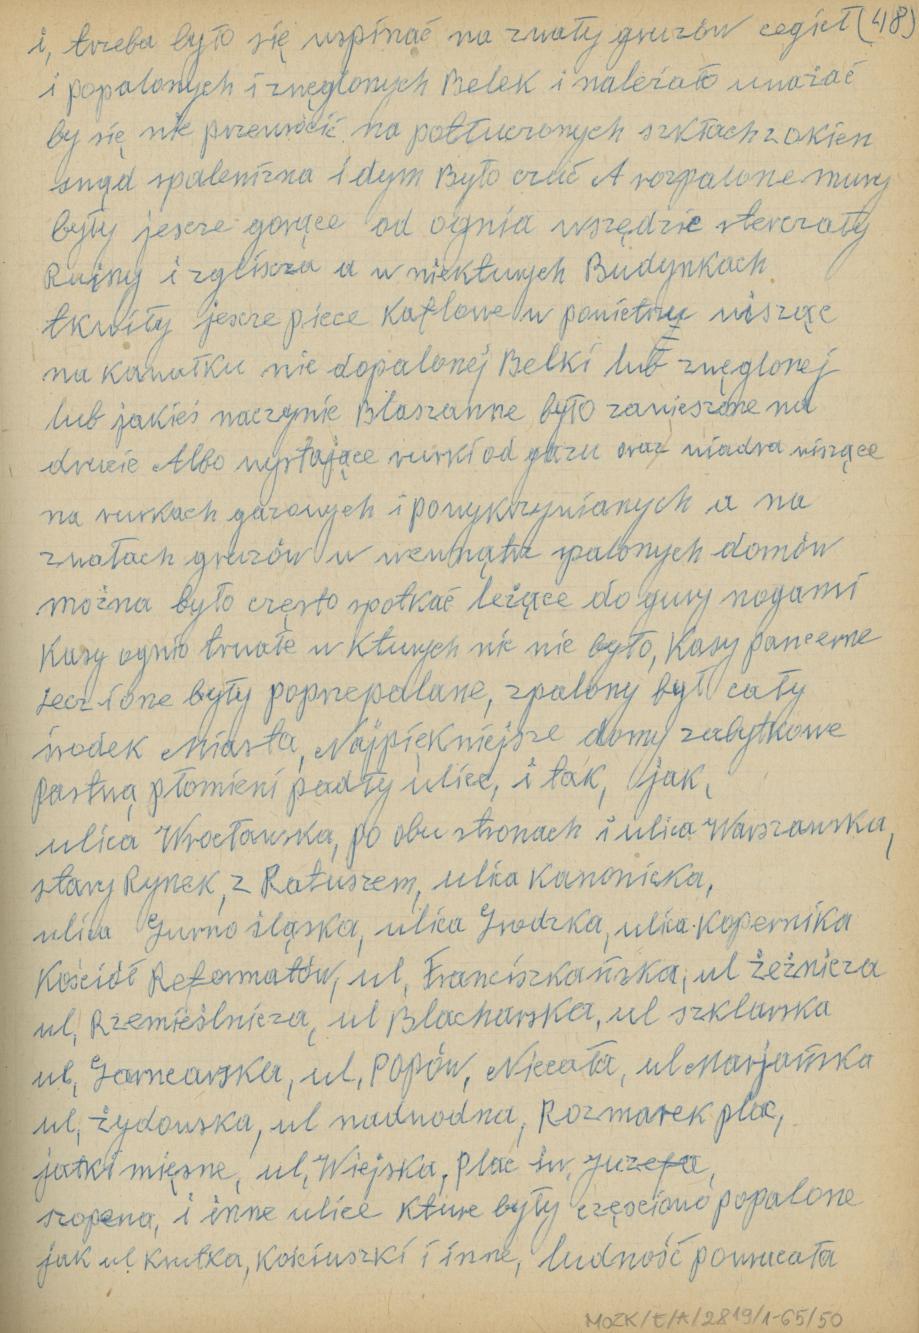 i, trzeba było się wspinać na zwały gruzów cegieł (48)
i popalonych i zwęglonych Belek i należało uważać
by się nie przewrócić na potłuczonych szkłach z okien
swąd spalenizna i dym Było czuć A rozpalone mury
były jescze gorące od ognia wszędzie sterczały
Ruiny i zgliscza a w niekturych Budynkach
tkwiły jescze piece Kaflowe w powietrzu wiszące
na kawałku nie dopalonej Belki lub zwęglonej
lub jakieś naczynie Blaszanne było zawieszone na
drucie Albo wystające rurki od gazu oraz wiadra wiszące
na rurkach gazowych i powykrzywianych a na
zwałach gruzów w wewnątrz spalonych domów
można było często spotkać leżące do gury nogami
Kasy ognio trwałe w kturych nic nie było, Kasy pancerne
iecz i one były poprzepalane, zpalony był cały
środek Miasta, Najpiękniejsze domy zabytkowe
pastwą płomieni padły ulice, i tak, jak,
ulica Wrocławska, po obu stronach i ulica Warszawska,
stary Rynek, z Ratuszem, ulica kanonicka,
ulica Gurno śląska, ulica Grodzka, ulica Kopernika
Kościół Reformatów, ul, Franciszkańska, ul żeźnicza
ul, Rzemieślnicza, ul Blacharska, ul szklarska
ul, Garncarska, ul, POPÓW, Niecała, ul Marjańska
ul, żydowska, ul nadwodna, Rozmarek plac,
jatki mięsne, ul, Wiejska, Plac św, Juzefa,
szopena, i inne ulice kture były częściowo popalone
jak ul krutka, kościuszki i inne, ludność powracała
MOZK/E/A/2819/1-65/50